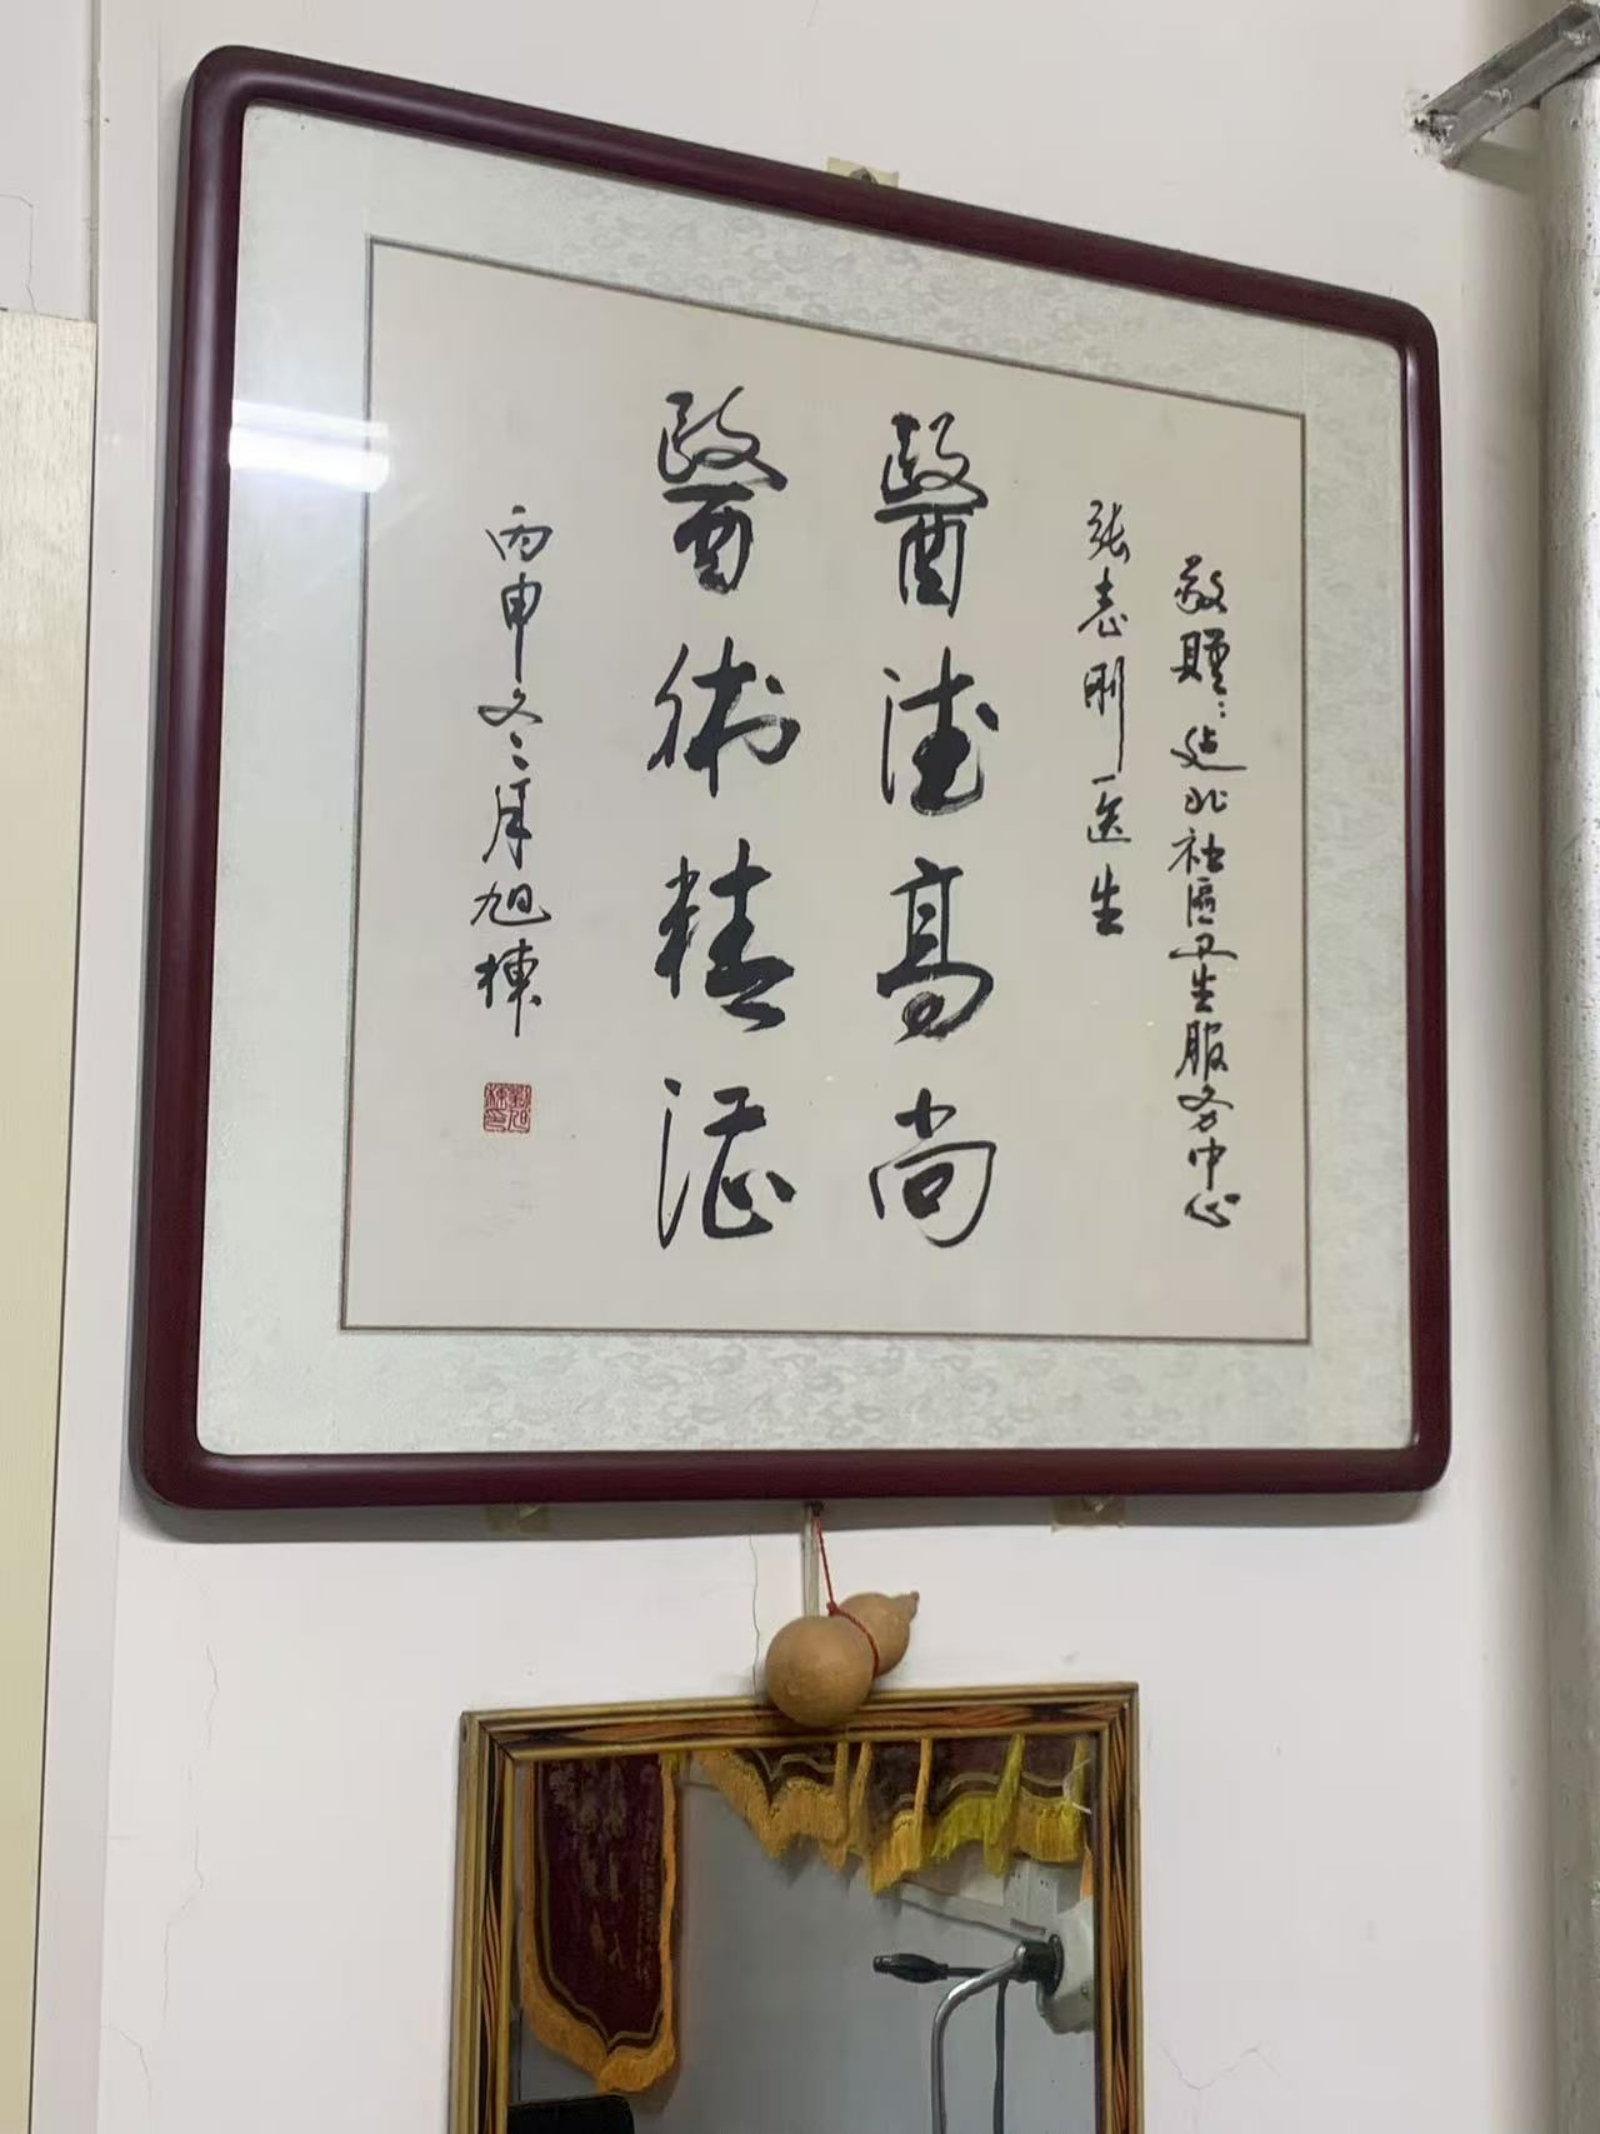 敬赠：建北社區卫生服务中心
张志刚医生
醫德高尚
醫術精湛
丙申冬月旭棟